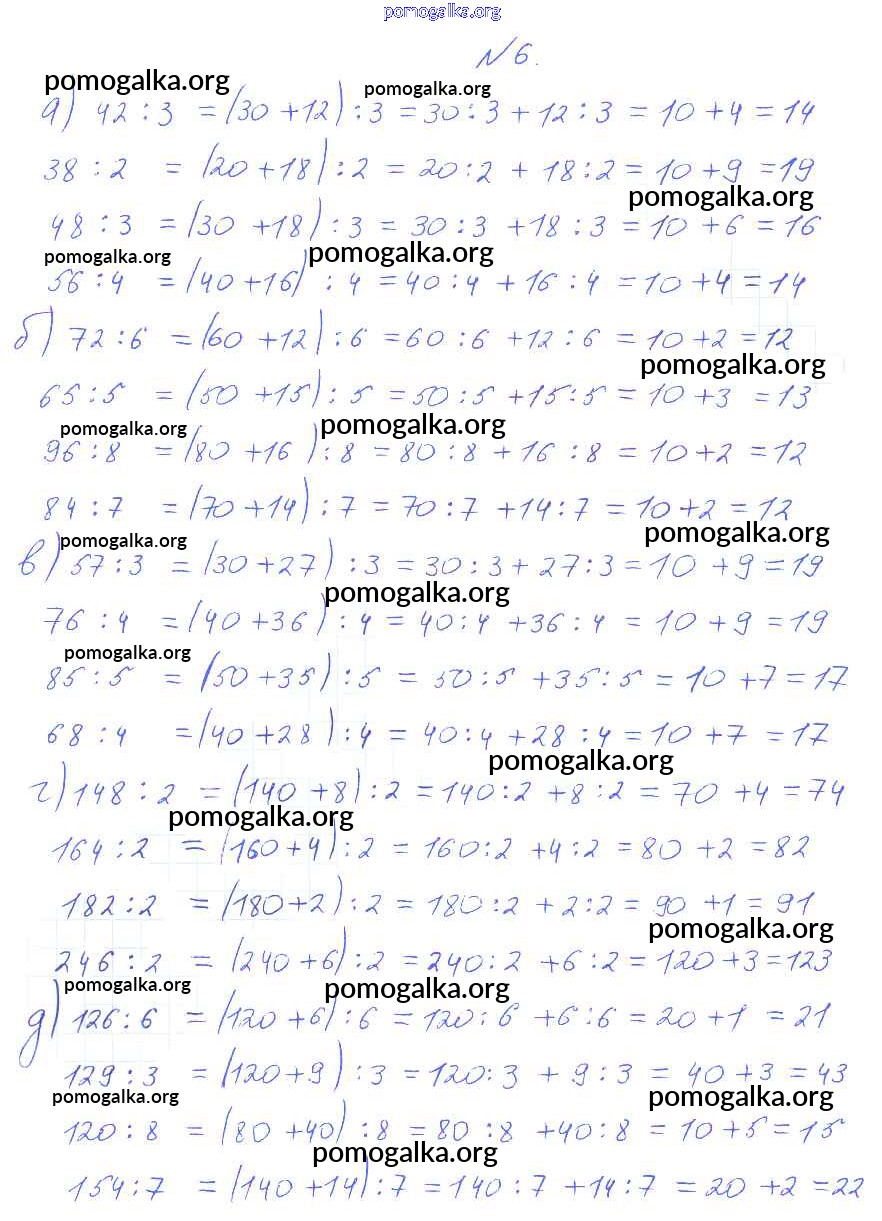 pomogalka.org
№ 6.
pomogalka.org
pomogalka.org
а) 42 : 3 = (30 + 12) : 3 = 30 : 3 + 12 : 3 = 10 + 4 = 14
38 : 2 = (20 + 18) : 2 = 20 : 2 + 18 : 2 = 10 + 9 = 19
pomogalka.org
48 : 3 = (30 + 18) : 3 = 30 : 3 + 18 : 3 = 10 + 6 = 16
pomogalka.org
pomogalka.org
56 : 4 = (40 + 16) : 4 = 40 : 4 + 16 : 4 = 10 + 4 = 14
б) 72 : 6 = (60 + 12) : 6 = 60 : 6 + 12 : 6 = 10 + 2 = 12
pomogalka.org
65 : 5 = (50 + 15) : 5 = 50 : 5 + 15 : 5 = 10 + 3 = 13
pomogalka.org
pomogalka.org
96 : 8 = (80 + 16) : 8 = 80 : 8 + 16 : 8 = 10 + 2 = 12
84 : 7 = (70 + 14) : 7 = 70 : 7 + 14 : 7 = 10 + 2 = 12
pomogalka.org
pomogalka.org
в) 57 : 3 = (30 + 27) : 3 = 30 : 3 + 27 : 3 = 10 + 9 = 19
pomogalka.org
76 : 4 = (40 + 36) : 4 = 40 : 4 + 36 : 4 = 10 + 9 = 19
pomogalka.org
85 : 5 = (50 + 35) : 5 = 50 : 5 + 35 : 5 = 10 + 7 = 17
68 : 4 = (40 + 28) : 4 = 40 : 4 + 28 : 4 = 10 + 7 = 17
pomogalka.org
г) 148 : 2 = (140 + 8) : 2 = 140 : 2 + 8 : 2 = 70 + 4 = 74
pomogalka.org
164 : 2 = (160 + 4) : 2 = 160 : 2 + 4 : 2 = 80 + 2 = 82
182 : 2 = (180 + 2) : 2 = 180 : 2 + 2 : 2 = 90 + 1 = 91
pomogalka.org
246 : 2 = (240 + 6) : 2 = 240 : 2 + 6 : 2 = 120 + 3 = 123
pomogalka.org
pomogalka.org
д) 126 : 6 = (120 + 6) : 6 = 120 : 6 + 6 : 6 = 20 + 1 = 21
129 : 3 = (120 + 9) : 3 = 120 : 3 + 9 : 3 = 40 + 3 = 43
pomogalka.org
pomogalka.org
120 : 8 = (80 + 40) : 8 = 80 : 8 + 40 : 8 = 10 + 5 = 15
pomogalka.org
154 : 7 = (140 + 14) : 7 = 140 : 7 + 14 : 7 = 20 + 2 = 22